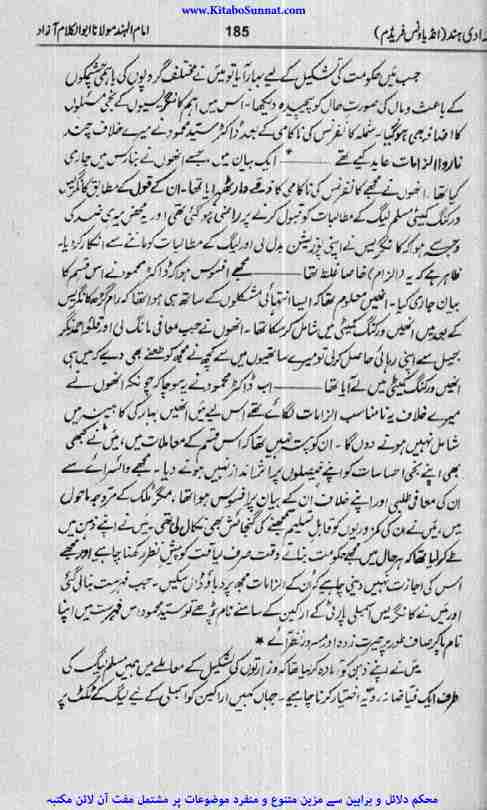 www.KitaboSunnat.com
آزادی ہند (انڈیا ونس فریڈم) 185 امام الہند مولانا ابوالکلام آزاد
جب میں حکومت کی تشکیل کے لیے بہار آیا تو میں نے مختلف گروپوں کی باہمی چشمکوں
کے باعث وہاں کی صورت حال کو پیچیدہ دیکھا۔ اس میں اہم کانگریسیوں کے نجی مسئلوں
کا اضافہ بھی ہو گیا۔ شملہ کانفرنس کی ناکامی کے بعد ڈاکٹر سید محمود نے میرے خلاف چند
ناروا الزامات عاید کیے تھے ——* ایک بیان میں، جسے انھوں نے بنارس میں جاری
کیا تھا۔ انھوں نے مجھے کانفرنس کی ناکامی کا ذمے دار ٹھہرایا تھا۔ ان کے قول کے مطابق کانگریس
ورکنگ کمیٹی مسلم لیگ کے مطالبات کو قبول کرنے پر راضی ہو گئی تھی اور یہ محض میری ضد کی
وجہ سے ہوا کہ کانگریس نے اپنی پوزیشن بدل لی اور لیگ کے مطالبات کو ماننے سے انکار کر دیا۔
ظاہر ہے کہ یہ (الزام) خاصا غلط تھا —— مجھے افسوس ہوا کہ ڈاکٹر محمود نے اس قسم کا
بیان جاری کیا۔ انھیں معلوم تھا کہ ایسا انتہائی مشکلوں کے ساتھ ہی ہوا تھا کہ رام گڑھ کانگریس
کے بعد میں انھیں ورکنگ کمیٹی میں شامل کر سکا تھا۔ انھوں نے جب معافی مانگ لی اور قلعہ احمد نگر
جیل سے اپنی رہائی حاصل کر لی تو میرے ساتھیوں میں سے کچھ نے مجھ کو طعنے بھی دیے کہ میں ہی
انھیں ورکنگ کمیٹی میں لے آیا تھا —— اب ڈاکٹر محمود نے یہ سوچا کہ چونکہ انھوں نے
میرے خلاف یہ نامناسب الزامات لگائے تھے اس لیے میں انھیں بہار کی کابینہ میں
شامل نہیں ہونے دوں گا۔ ان کو پتہ نہیں تھا کہ اس قسم کے معاملات میں، میں نے کبھی
بھی اپنے نجی احساسات کو اپنے فیصلوں پر اثر انداز نہیں ہونے دیا۔ مجھے وائسرائے سے
ان کی معافی طلبی اور اپنے خلاف ان کے بیان پر افسوس ہوا تھا، مگر ملک کے مروجہ ماحول
میں، میں نے ان کی کمزوریوں کو قابل تسلیم سمجھنے کی گنجائش بھی نکال لی تھی۔ میں نے اپنے ذہن میں
طے کر لیا تھا کہ بہر حال میں مجھے حکومت بناتے وقت صرف لیاقت کو پیش نظر رکھنا چاہیے اور مجھے
اس کی اجازت نہیں دینی چاہیے کہ ان کے الزامات مجھ پر دباؤ ڈال سکیں۔ جب فہرست بنائی گئی
اور میں نے کانگریس اسمبلی پارٹی کے اراکین کے سامنے نام پڑھے تو سید محمود اس فہرست میں اپنا
نام پا کر صاف طور پر حیرت زدہ اور مسرور نظر آئے *
میں نے اپنے ذہن کو آمادہ کر لیا تھا کہ وزارتوں کی تشکیل کے معاملے میں ہمیں مسلم لیگ کی
طرف ایک فیاضانہ رویہ اختیار کرنا چاہیے۔ جہاں کہیں اراکین کو اسمبلی کے لیے لیگ کے ٹکٹ پر
محکم دلائل و براہین سے مزین متنوع و منفرد موضوعات پر مشتمل مفت آن لائن مکتبہ